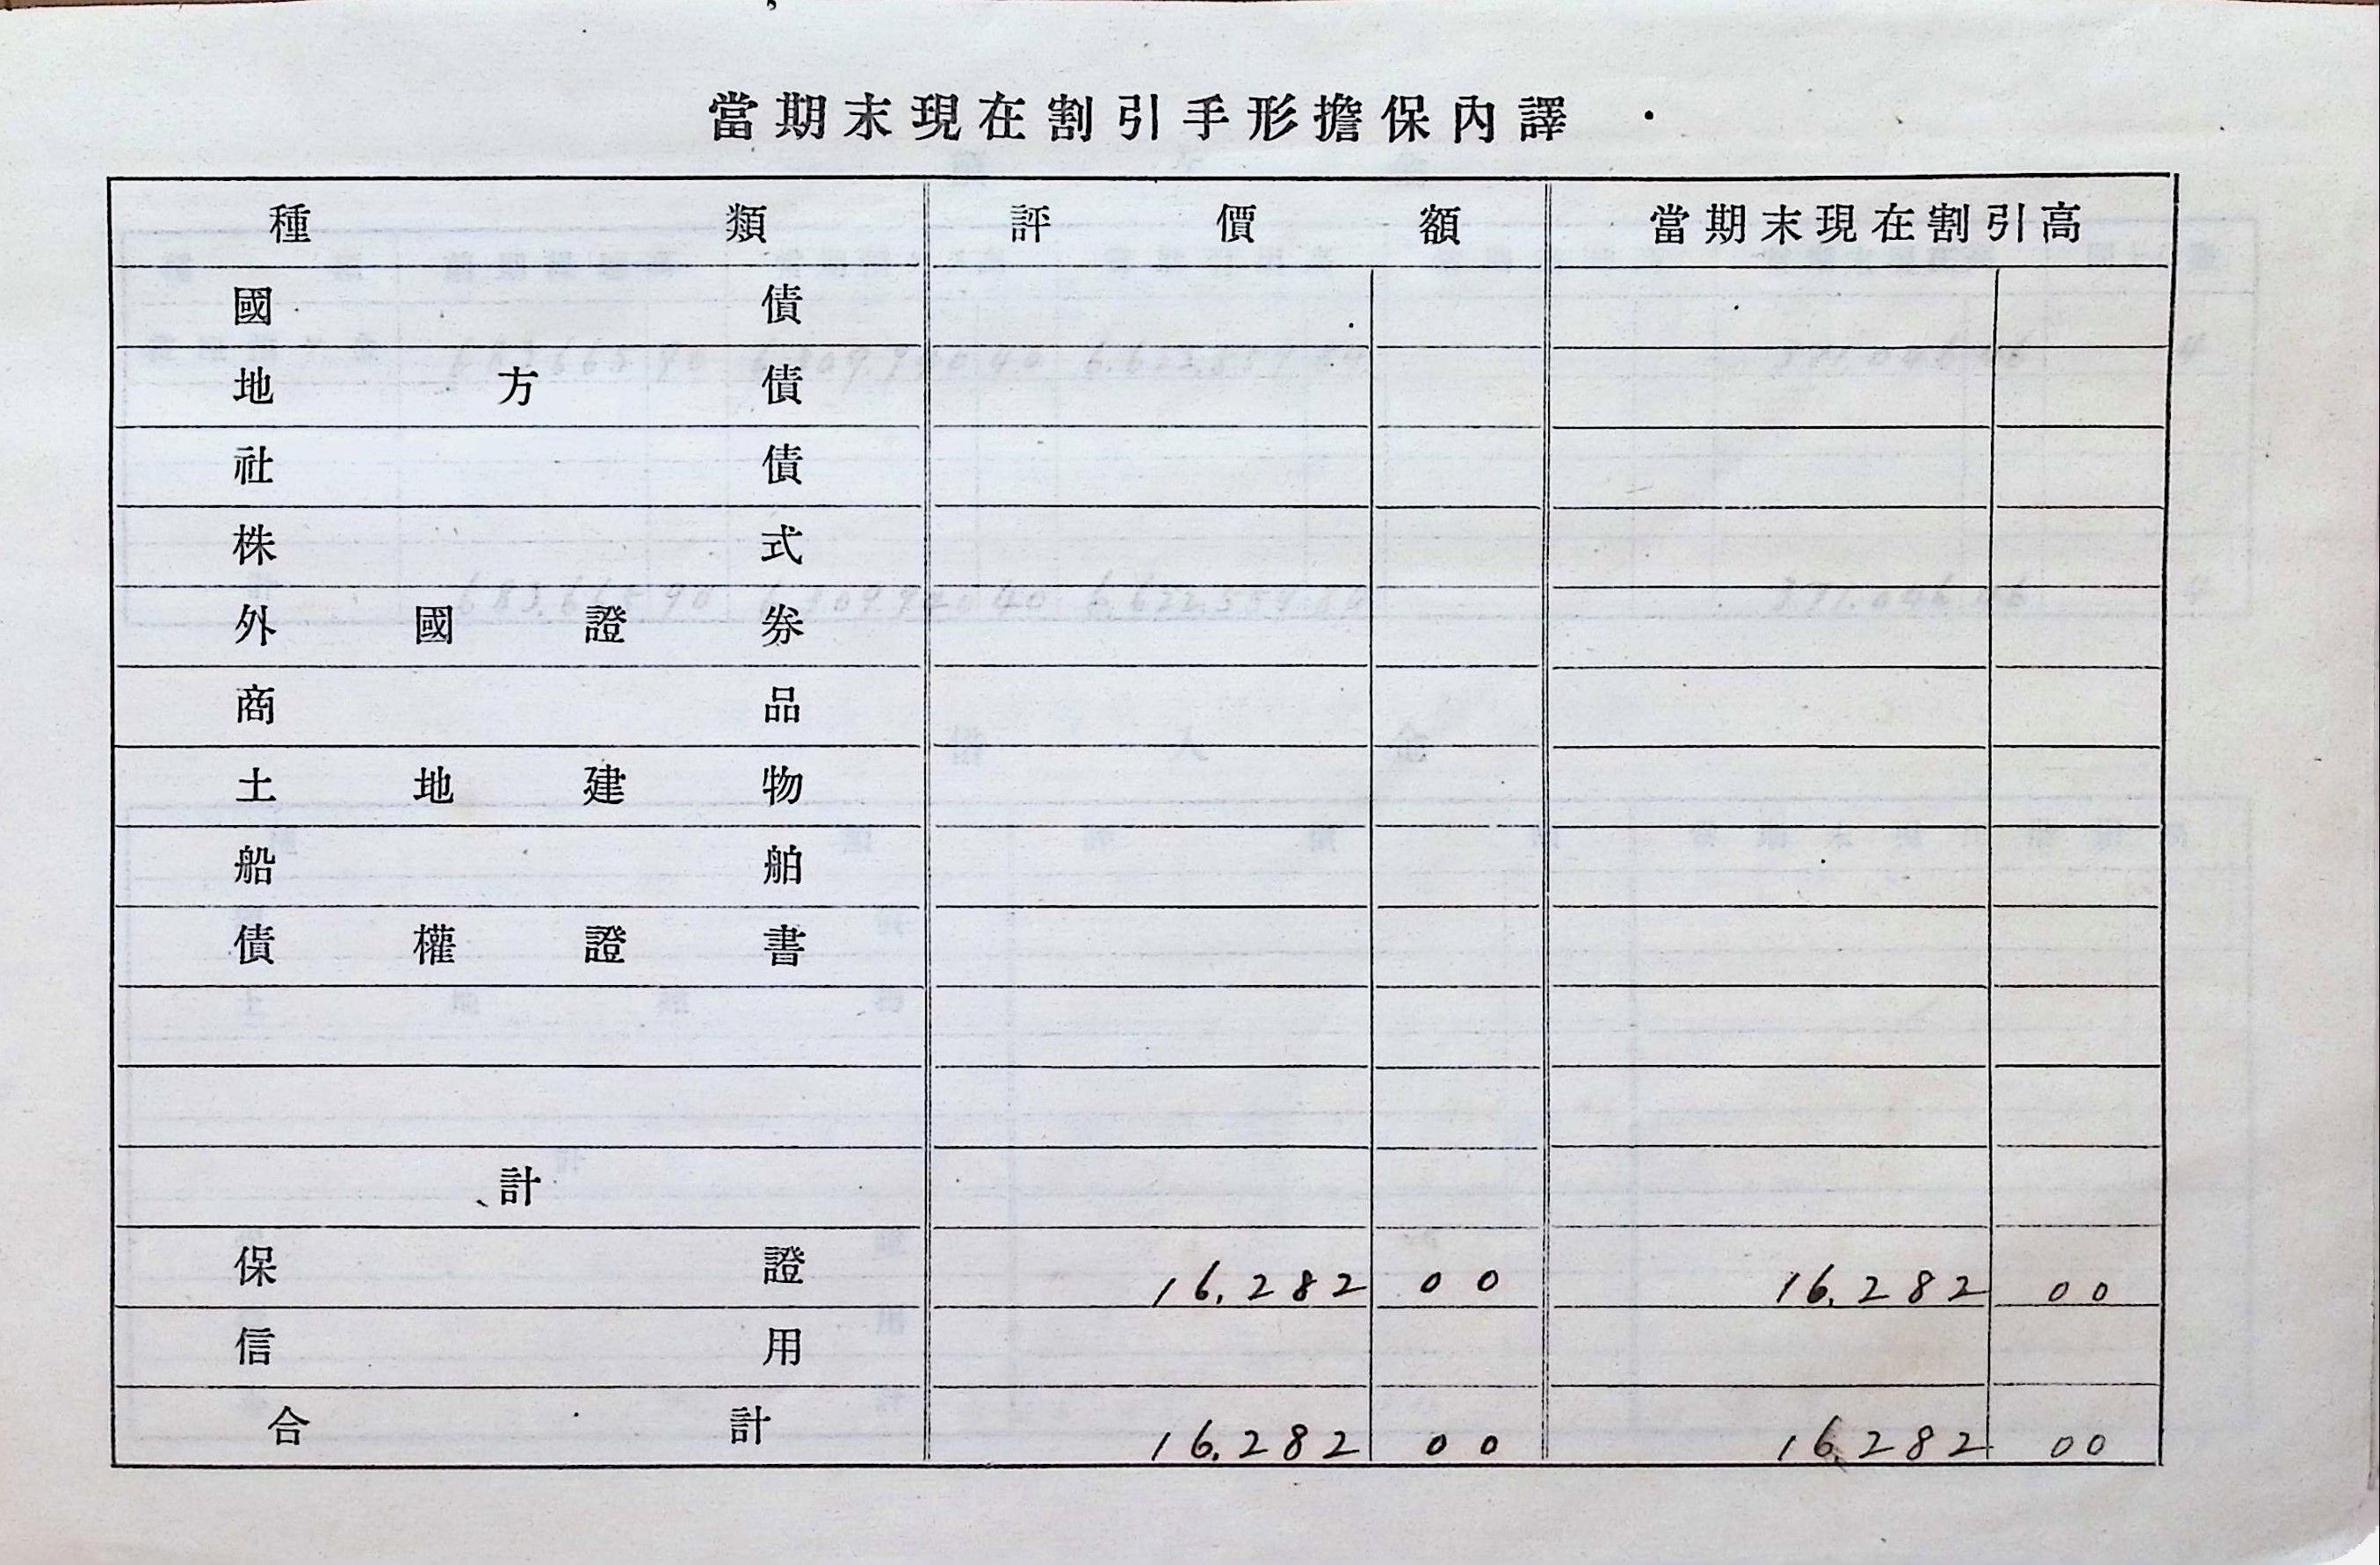 當期末現在割引手形擔保內譯
種類 評價額 當期末現在割引高
國債
地方債
社債
株式
外國證券
商品
土地建物
船舶
債權證書
計
保證 16.282 00 16.282 00
信用
合計 16.282 00 16.282 00